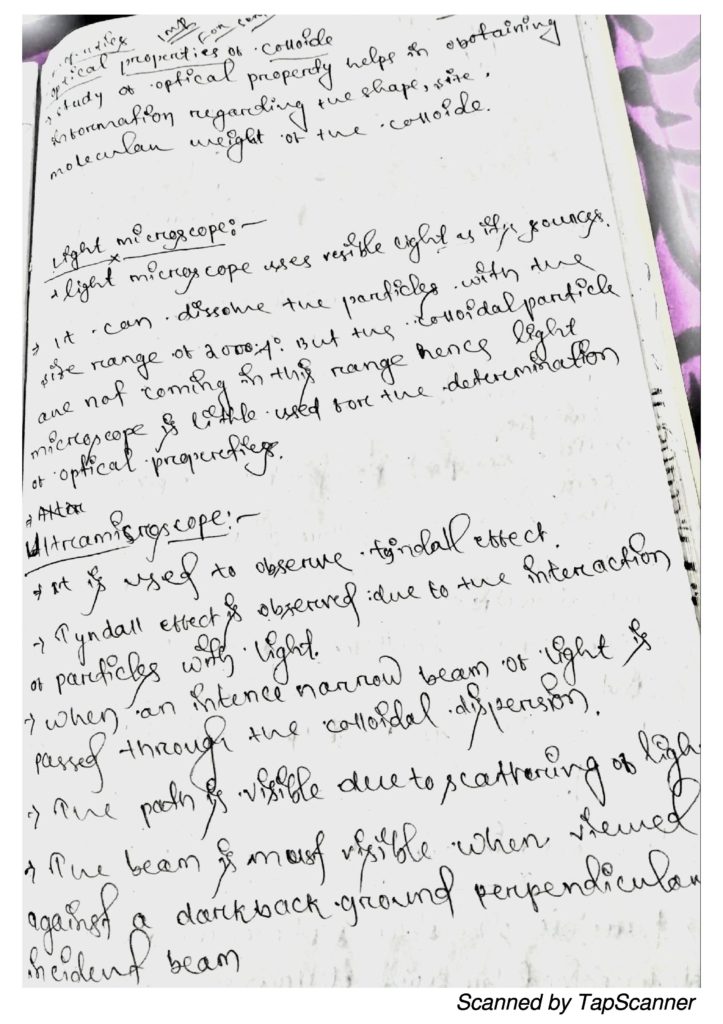 Imp
For
optical properties of colloide
→ study of optical property helps in obotaining
information regarding the shape, size,
moleculan weight of the colloide.
Light microscope:-
→ light microscope uses visible light as its sources.
→ It can dissome the particles with the
size range of 2000A° But the colloidal particle
are not coming in this range hence light
microscope is little used fore the determination
of optical properties.
Ultramicroscope:-
→ It is used to observe tyndall effect.
→ Tyndall effect is observed due to the interaction
of particles with light.
→ when an intence narrow beam of light is
passed through the colloidal dispersion.
→ The path is visible due to scattering of ligh
→ The beam is most visible when viewed
against a darkback ground perpendiculan
incident beam
Scanned by TapScanner